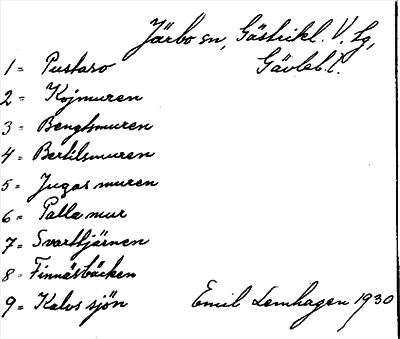 Järbo sn, Gästrikl. V. Lg,
Gävleb. l.
1 = Pustaro
2 = Kojmuren
3 = Bengtsmuren
4 = Bertilsmuren
5 = Jugas muren
6 = Palla mur
7 = Svarttjärnen
8 = Finnäsbäcken
9 = Kalvs sjön
Emil Lemhagen 1930